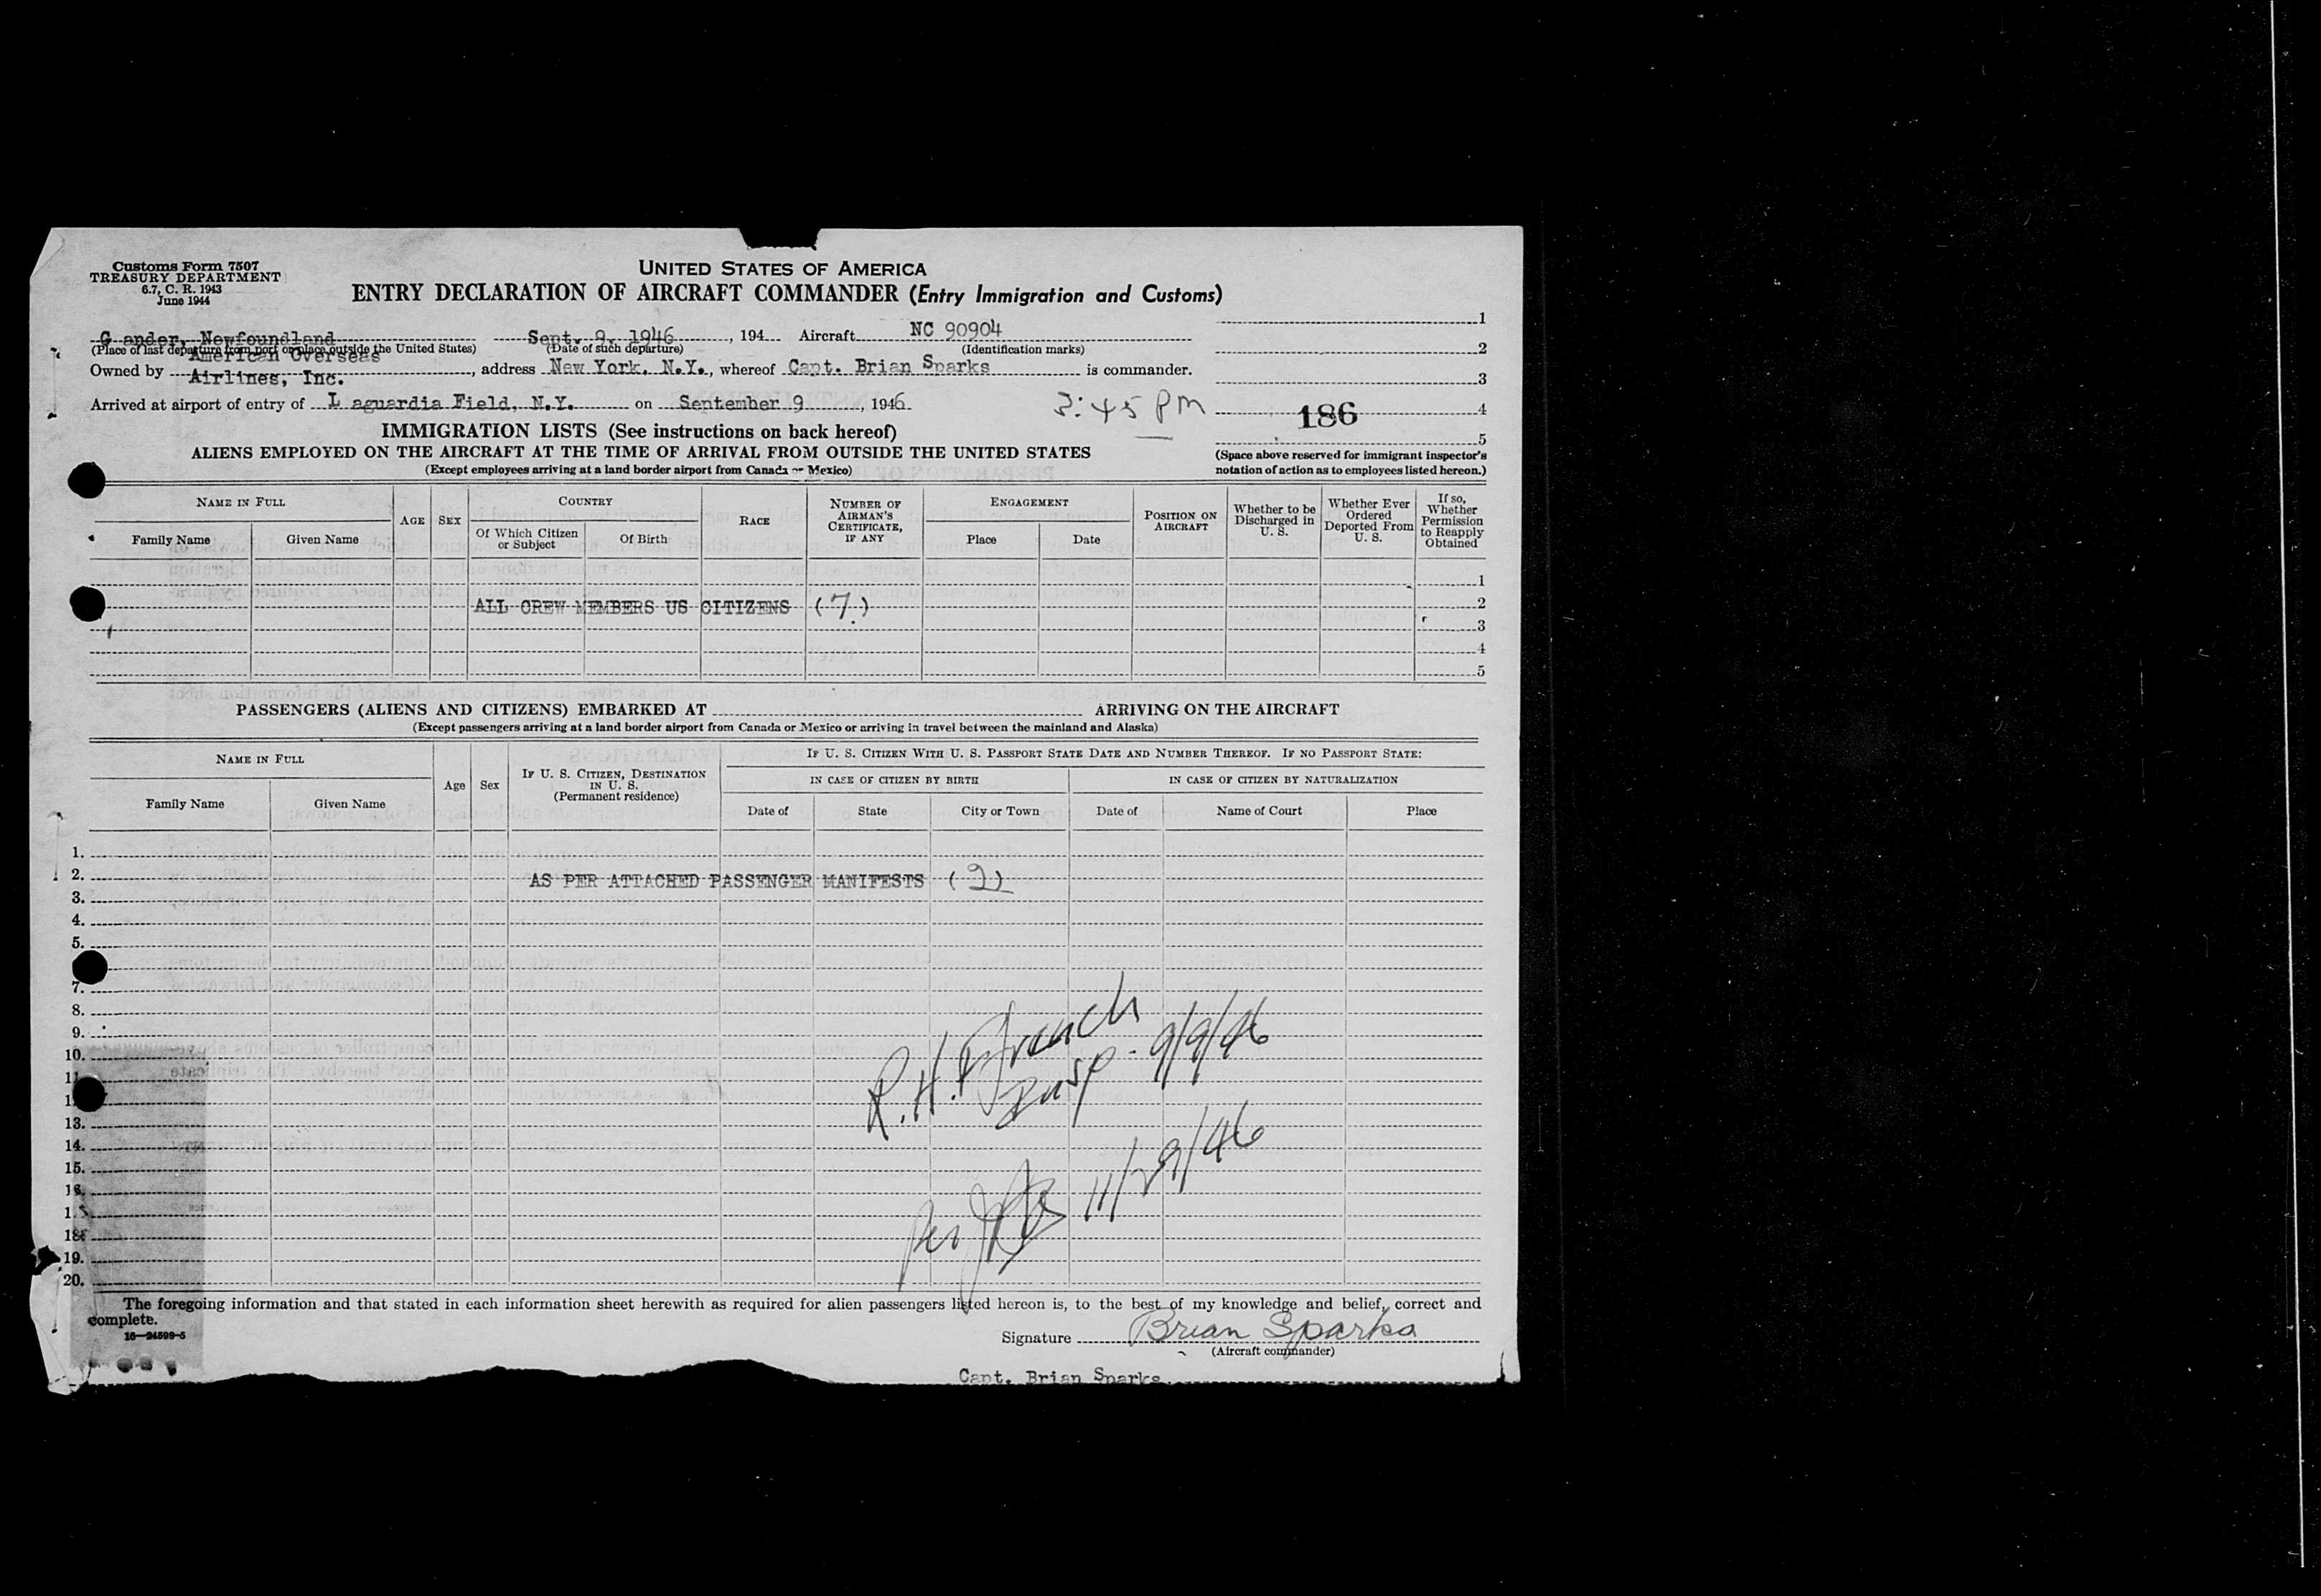 Customs Form 7507
TREASURY DEPARTMENT
6.7, C. R. 1943
June 1944
UNITED STATES OF AMERICA
ENTRY DECLARATION OF AIRCRAFT COMMANDER (Entry Immigration and Customs)
G ander, Newfoundland Sept. 9, 1946, 194 Aircraft NC 90904
(Place of last departure from port or place outside the United States) (Date of such departure) (Identification marks)
American Overseas
Owned by Airlines, Inc., address New York, N.Y., whereof Capt. Brian Sparks is commander.
Arrived at airport of entry of L aguardia Field, N.Y. on September 9, 1946 3:45 PM
1
2
3
186 4
5
(Space above reserved for immigrant inspector's
notation of action as to employees listed hereon.)
IMMIGRATION LISTS (See instructions on back hereof)
ALIENS EMPLOYED ON THE AIRCRAFT AT THE TIME OF ARRIVAL FROM OUTSIDE THE UNITED STATES
(Except employees arriving at a land border airport from Canada or Mexico)
NAME IN FULL
Family Name Given Name
AGE SEX
COUNTRY
Of Which Citizen or Subject Of Birth
RACE
NUMBER OF AIRMAN'S CERTIFICATE, IF ANY
ENGAGEMENT
Place Date
POSITION ON AIRCRAFT
Whether to be Discharged in U. S.
Whether Ever Ordered Deported From U. S.
If so, Whether Permission to Reapply Obtained
1
ALL CREW MEMBERS US CITIZENS (7) 2
3
4
5
PASSENGERS (ALIENS AND CITIZENS) EMBARKED AT ARRIVING ON THE AIRCRAFT
(Except passengers arriving at a land border airport from Canada or Mexico or arriving in travel between the mainland and Alaska)
NAME IN FULL
Family Name Given Name
Age Sex
IF U. S. CITIZEN, DESTINATION IN U. S.
(Permanent residence)
IF U. S. CITIZEN WITH U. S. PASSPORT STATE DATE AND NUMBER THEREOF. IF NO PASSPORT STATE:
IN CASE OF CITIZEN BY BIRTH IN CASE OF CITIZEN BY NATURALIZATION
Date of State City or Town Date of Name of Court Place
1.
2. AS PER ATTACHED PASSENGER MANIFESTS (2)
3.
4.
5.
7.
8.
9.
10.
11
1
13.
14.
15.
16.
1
18
19.
20.
R.H. French
Insp. 9/9/46
11/29/46
The foregoing information and that stated in each information sheet herewith as required for alien passengers listed hereon is, to the best of my knowledge and belief, correct and
complete.
16—24598-5
Signature Brian Sparks
(Aircraft commander)
Capt. Brian Sparks